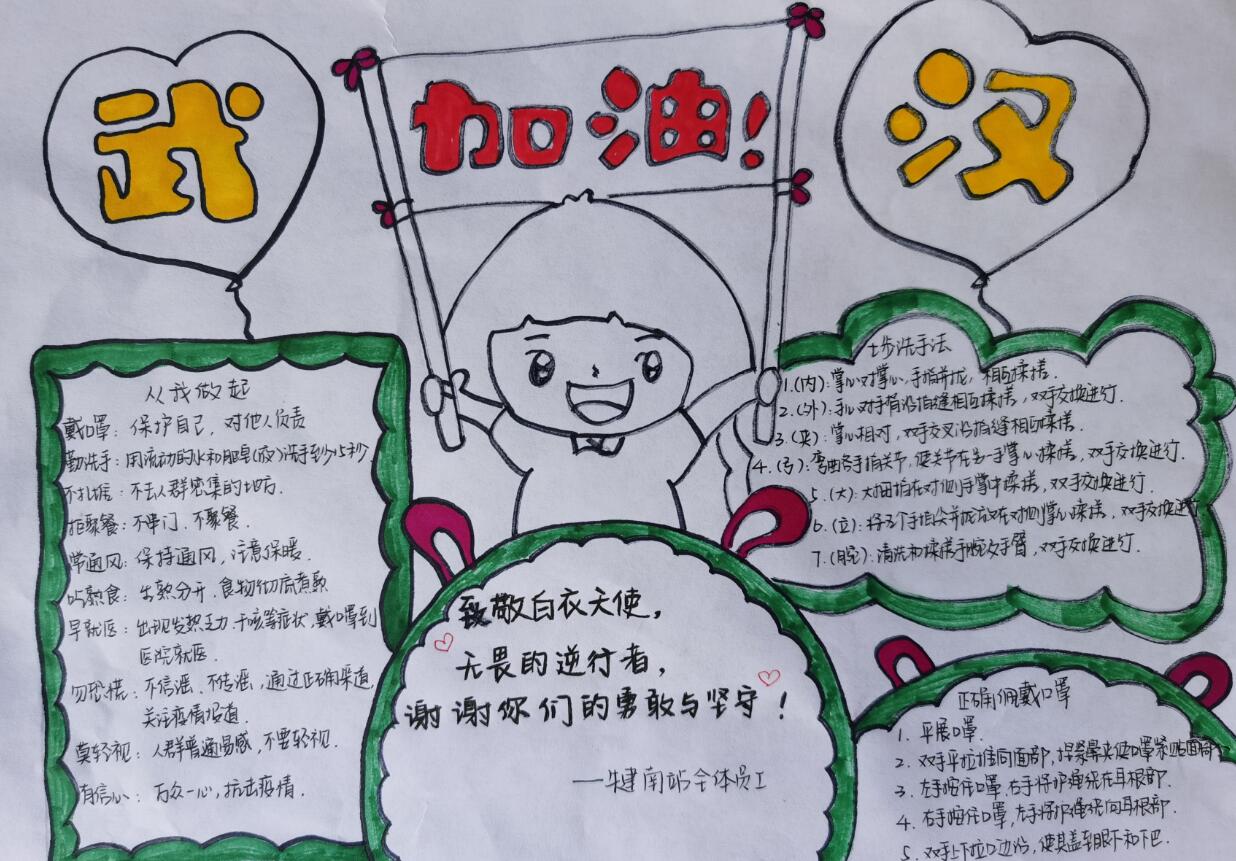 武
加油!
汉
从我做起
戴口罩：保护自己，对他人负责
勤洗手：用流动的水和肥皂(液)洗手至少15秒
不扎堆：不去人群密集的地方.
拒聚餐：不串门、不聚餐.
常通风：保持通风，注意保暖.
吃熟食：生熟分开、食物彻底煮熟
早就医：出现发热乏力、干咳等症状，戴口罩到
医院就医.
勿恐慌：不信谣、不传谣，通过正确渠道，
关注疫情报道.
莫轻视：人群普遍易感，不要轻视.
有信心：万众一心，抗击疫情.
致敬白衣天使，
无畏的逆行者，
谢谢你们的勇敢与坚守！
南站全体员工
七步洗手法
1.(内)：掌心对掌心，手指并拢，相互揉搓.
2.(外)：手心对手背沿指缝相互揉搓，双手交换进行.
3.(夹)：掌心相对，双手交叉沿指缝相互揉搓.
4.(弓)：弯曲各手指关节，使关节在另一手掌心揉搓，双手交换进行.
5.(大)：大拇指在对侧手掌中揉搓，双手交换进行.
6.(立)：将5个手指尖并拢放在对侧掌心揉搓，双手交换进行
7.(腕)：清洗和揉搓手腕及手臂，双手交换进行.
正确佩戴口罩
1. 平展口罩.
2. 双手平拉推向面部，捏紧鼻夹使口罩紧贴面部
3. 左手按住口罩，右手将护绳绕在耳根部.
4. 右手按住口罩，左手将护绳绕向耳根部.
5. 双手上下拉口边沿，使其盖至眼下和下巴.